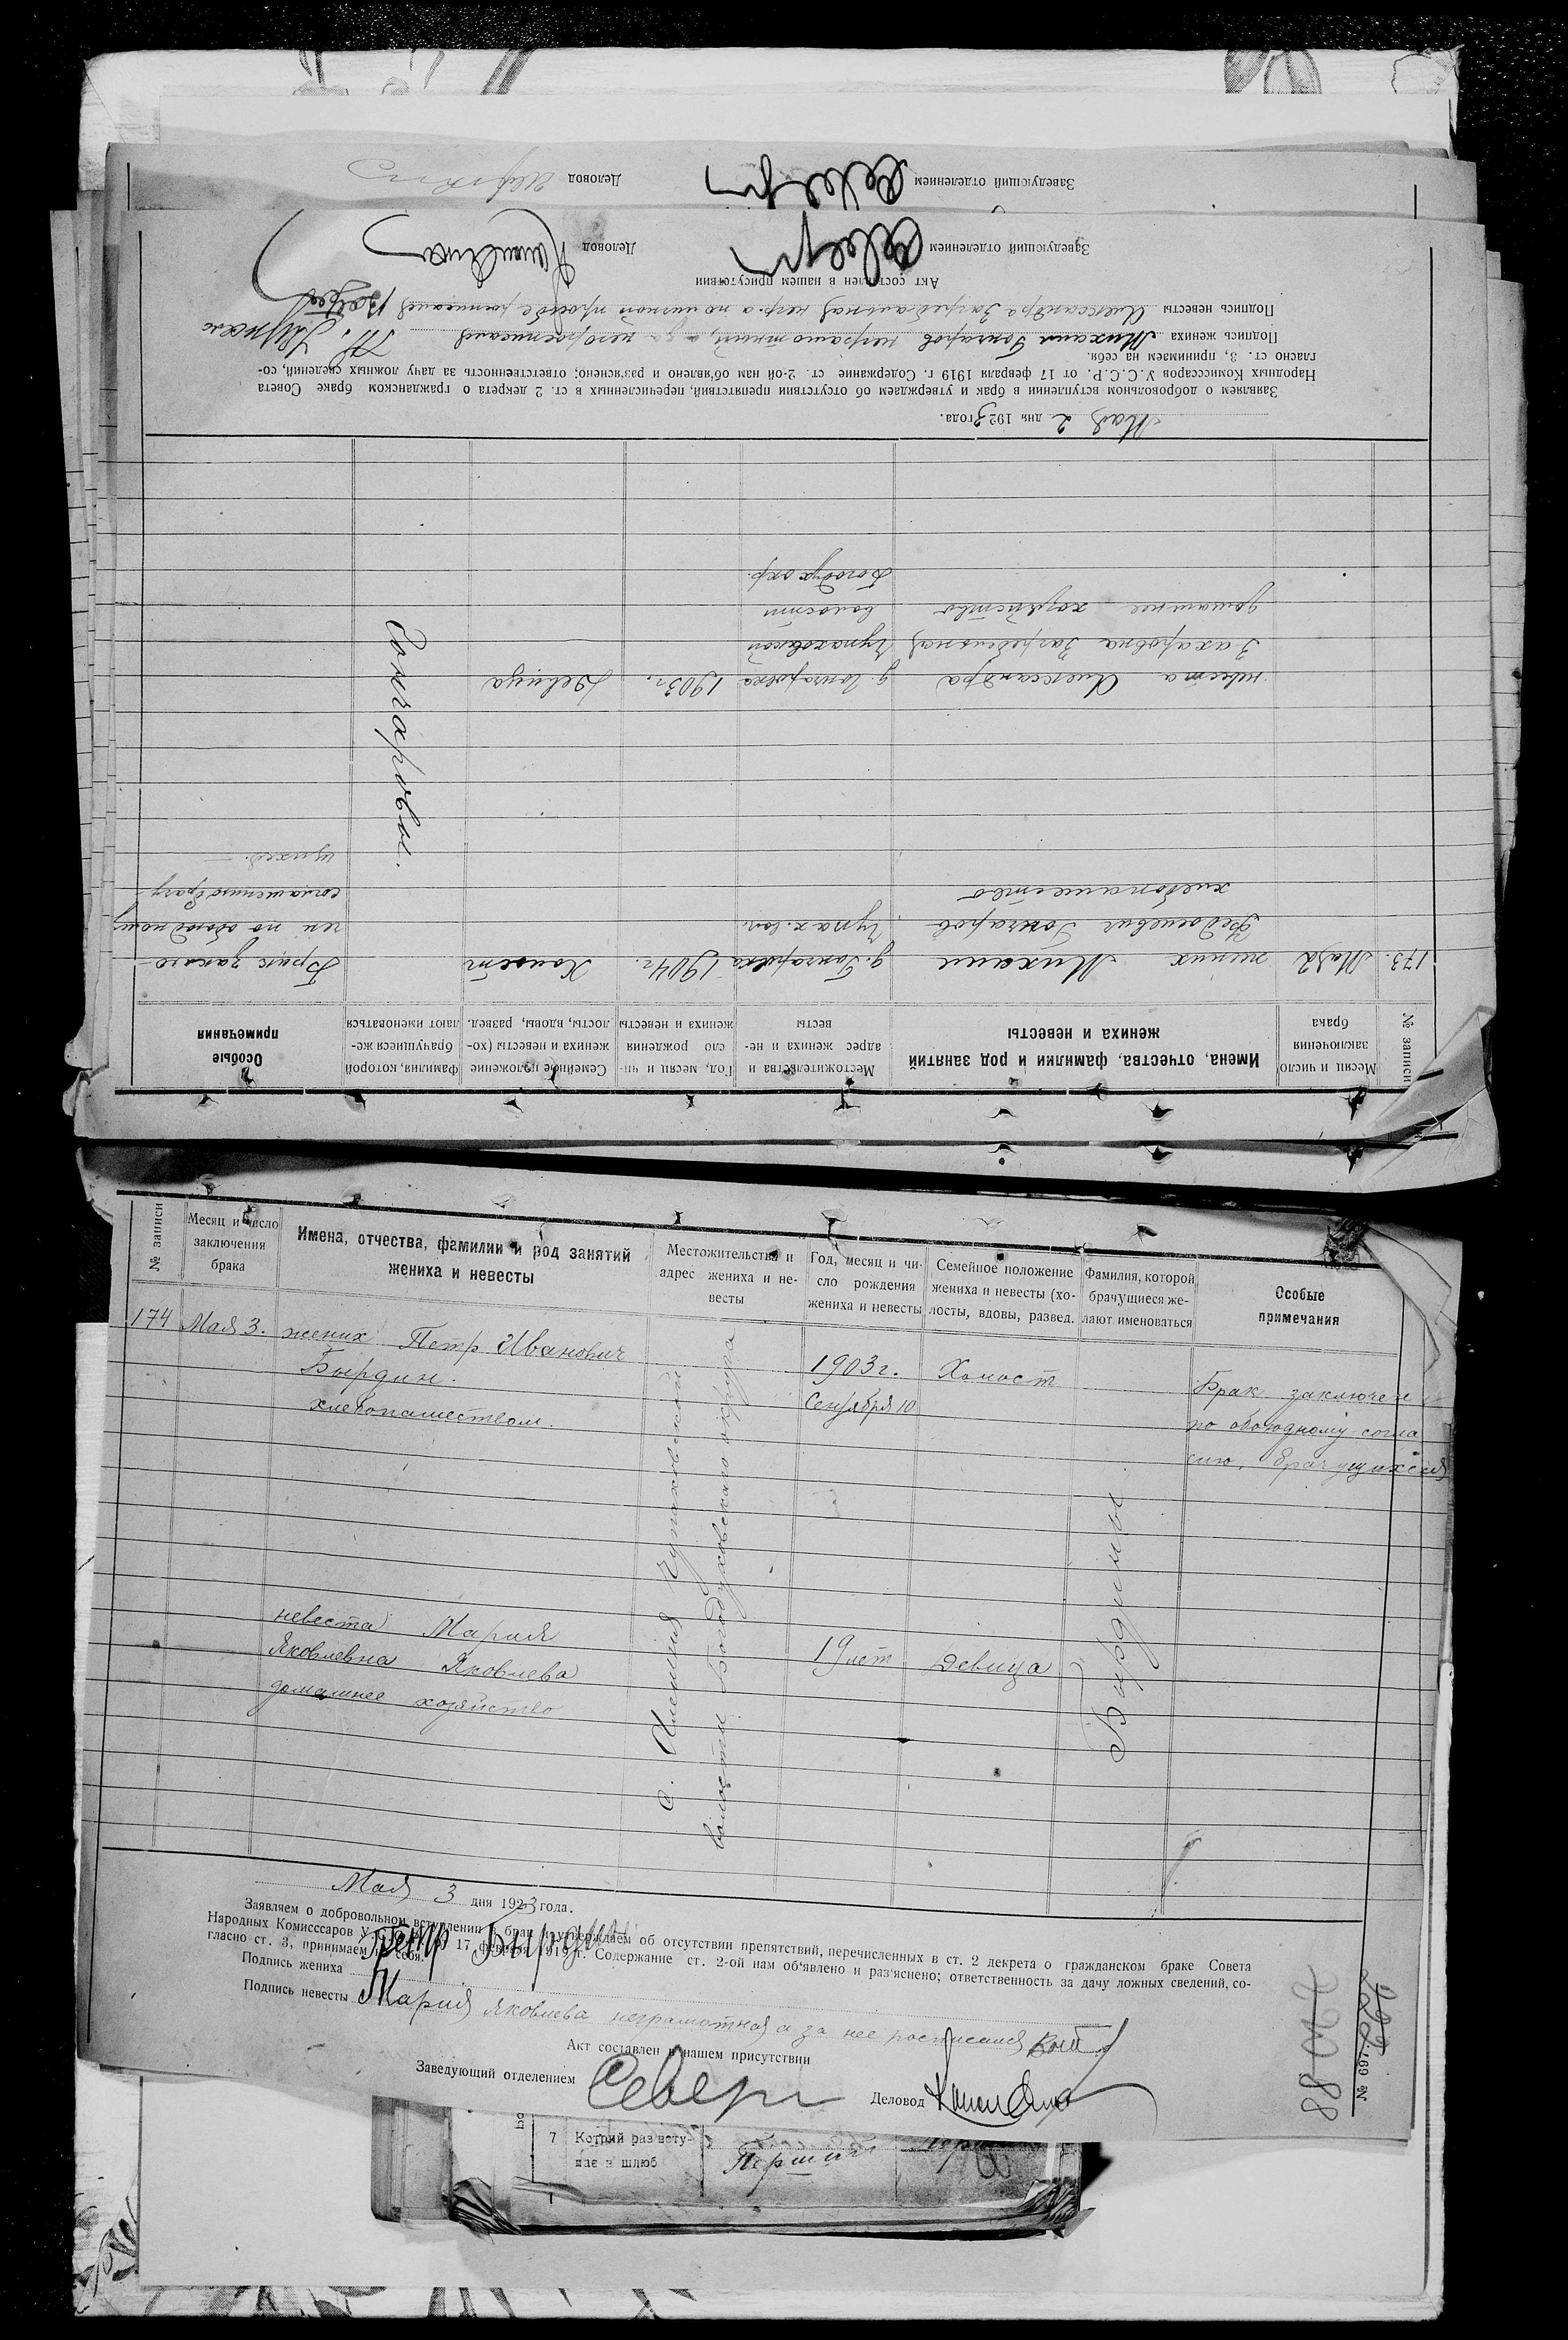 Заведующий отделением
Деловод
№ записи
Месяц и число заключения брака
Имена, отчества, фамилии и род занятий жениха и невесты
Местожительства и адрес жениха и не-весты
Год, месяц и чи-сло рождения жениха и невесты
Семейное положение жениха и невесты (хо-лосты, вдовы, развед.
Фамилия, которой брачущиеся же-лают именоваться
Особые примечания
173. Мая 2 жених Михаил
Федосеевич Гончаров
хлебопашество
д. Гончаровка
Чупах. вол.
1904 г.
Холост
Гончаровы.
Брак заклю-
чен по обоюдному
соглашению брачу-
щихся.
невеста Александра
Захаровна Загребельная
домашнее хозяйство
д. Гончаровка
Чупаховской
волости
Богодух окр.
1903 г.
Девица
Мая 2 дня 1923 года.
Заявляем о добровольном вступлении в брак и утверждаем об отсутствии препятствий, перечисленных в ст. 2 декрета о гражданском браке Совета
Народных Комиссаров У.С.С.Р. от 17 февраля 1919 г. Содержание ст. 2-ой нам об'явлено и раз'яснено; ответственность за дачу ложных сведений, со-
гласно ст. 3, принимаем на себя.
Подпись жениха Михаил Гончаров неграмотный, а за него росписался
Подпись невесты Александра Загребельная негр. а по личной просьбе росписался
Акт составлен в нашем присутствии
Заведующий отделением
Деловод
№ записи
Месяц и число
заключения
брака
Имена, отчества, фамилии и род занятий
жениха и невесты
Местожительства и
адрес жениха и не-
весты
Год, месяц и чи-
сло рождения
жениха и невесты
Семейное положение
жениха и невесты (хо-
лосты, вдовы, развед.
Фамилия, которой
брачущиеся же-
лают именоваться
Особые
примечания
174 Мая 3. жених Петр Иванович
Бырдин.
хлебопашеством.
1903 г.
Сентября 10
Холост
Брак заключен
по обоюдному согла
сию, брачущихся
с. Алешня Чупаховской
волости Богодуховского округа
Бырдины
невеста Мария
Яковлевна Яковлева
домашнее хозяйство
19 лет
Девица
Мая 3 дня 1923 года.
Заявляем о добровольном вступлении в брак и утверждаем об отсутствии препятствий, перечисленных в ст. 2 декрета о гражданском браке Совета
Народных Комисссаров У.С.С.Р. от 17 февраля 1919 г. Содержание ст. 2-ой нам об'явлено и раз'яснено; ответственность за дачу ложных сведений, со-
гласно ст. 3, принимаем на себя.
Подпись жениха Петр Бырдин
Подпись невесты Мария Яковлева неграмотная а за нее росписался
Акт составлен в нашем присутствии
Заведующий отделением
Деловод
№ 697.
7 Котрий раз всту-
пає в шлюб
Перший